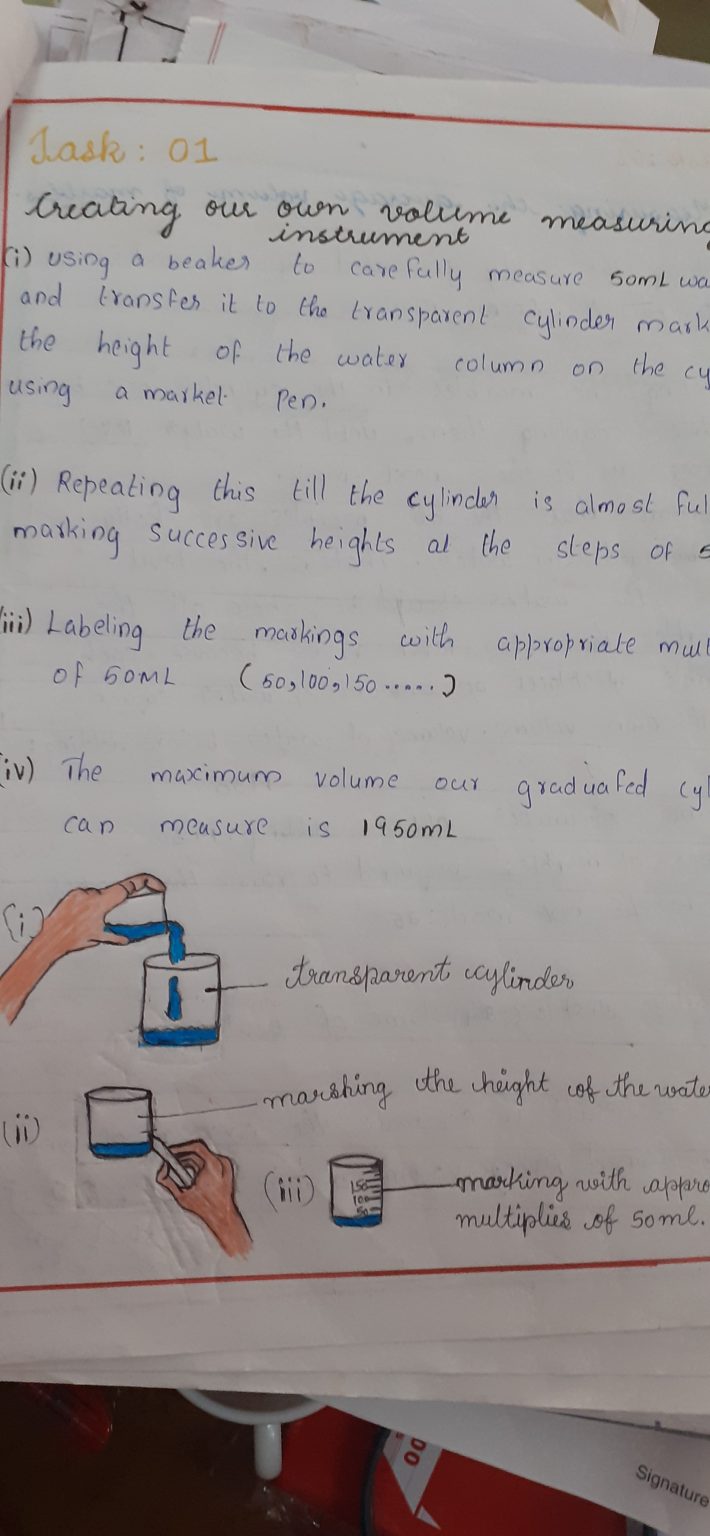 Task : 01
Creating our own volume measuring
instrument
(i) using a beaker to carefully measure 50mL wa
and transfer it to the transparent cylinder mark
the height of the water column on the cy
using a market Pen.
(ii) Repeating this till the cylinder is almost ful
marking successive heights at the steps of 5
(iii) Labeling the markings with appropriate mul
of 50ML (50,100,150......)
(iv) The maximum volume our graduated cyl
can measure is 1950mL
(i)
transparent cylinder
marshing the height of the wate
(ii)
(iii)
150
100
50
marking with appro
multiplies of 50ml.
00
Signature